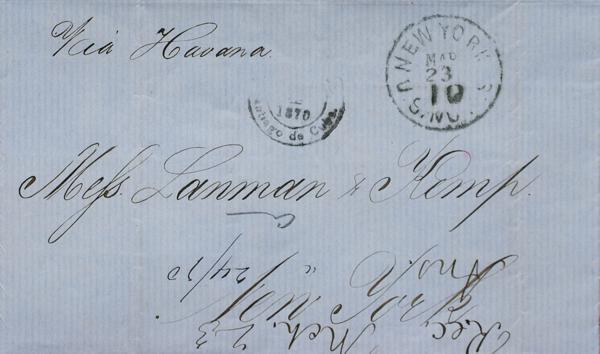 Via Havana.
NEW YORK U.S.
MAR
23
10
1870
Santiago de Cuba
Mess. Lanman & Kemp.
New York
Rec. Mch. 23
Ans.
24/70